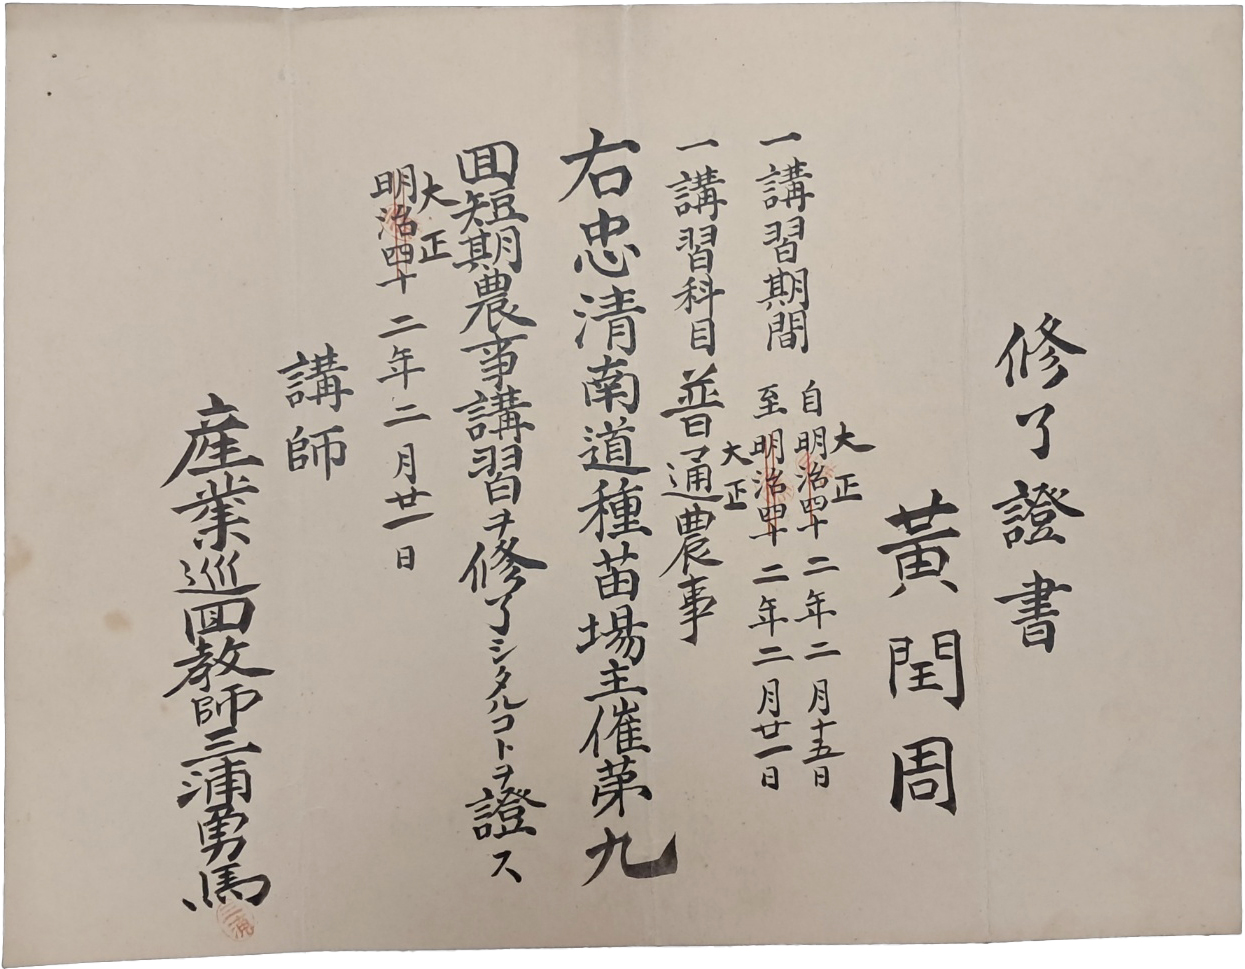 修了證書
黃閏周
一講習期間
自明治四十二年二月十五日
大正
至明治四十二年二月廿一日
大正
一講習科目普通農事
右忠清南道種苗場主催第九
回短期農事講習ヲ修了シタルコトヲ證ス
大正
明治四十二年二月廿一日
講師
産業巡回教師三浦勇馬